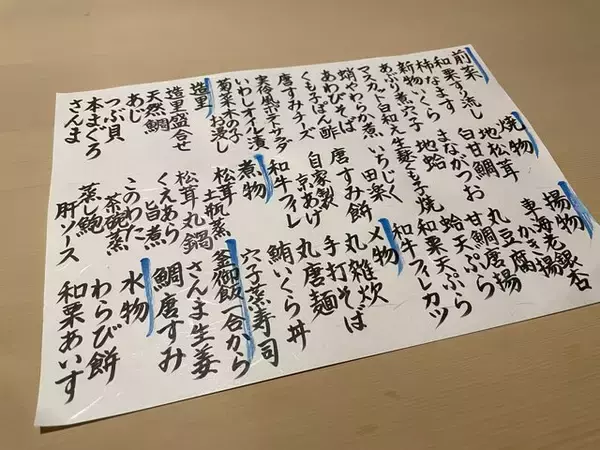 前菜
和栗すり流し
柿なます
新物いくら
あぶり煮穴子
マスカット白和え
蛸やわらか煮
あわびそば
くも子ぽん酢
唐すみチーズ
ポテサラダ
いわしオイル漬
菊菜木の子お浸し
造里
造里盛合せ
天然鯛
あじ
つぶ貝
本まぐろ
さんま
焼物
地松茸
白甘鯛
まながつお
地蛤
生麩くも子焼
いちじく田楽
唐すみ餅
自家製
京あげ
和牛フィレ
煮物
松茸土瓶蒸
松茸丸鍋
くえあら旨煮
このわた
茶碗蒸
蒸し鮑
肝ソース
揚物
車海老銀杏
かき揚
丸豆腐
甘鯛唐揚
蛤天ぷら
和栗天ぷら
和牛フィレカツ
〆物
丸雑炊
手打そば
鮪いくら丼
穴子蒸寿司
釜御飯一合から
さんま生姜
鯛唐すみ
水物
わらび餅
和栗あいす